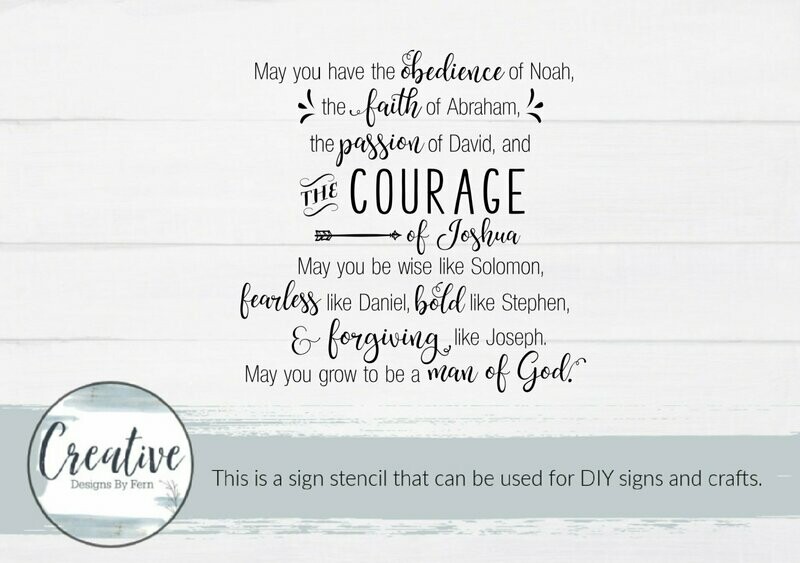 May you have the obedience of Noah,
the faith of Abraham,
the passion of David, and
THE COURAGE
of Joshua
May you be wise like Solomon,
fearless like Daniel, bold like Stephen,
& forgiving like Joseph.
May you grow to be a man of God.
Creative
Designs By Fern
This is a sign stencil that can be used for DIY signs and crafts.